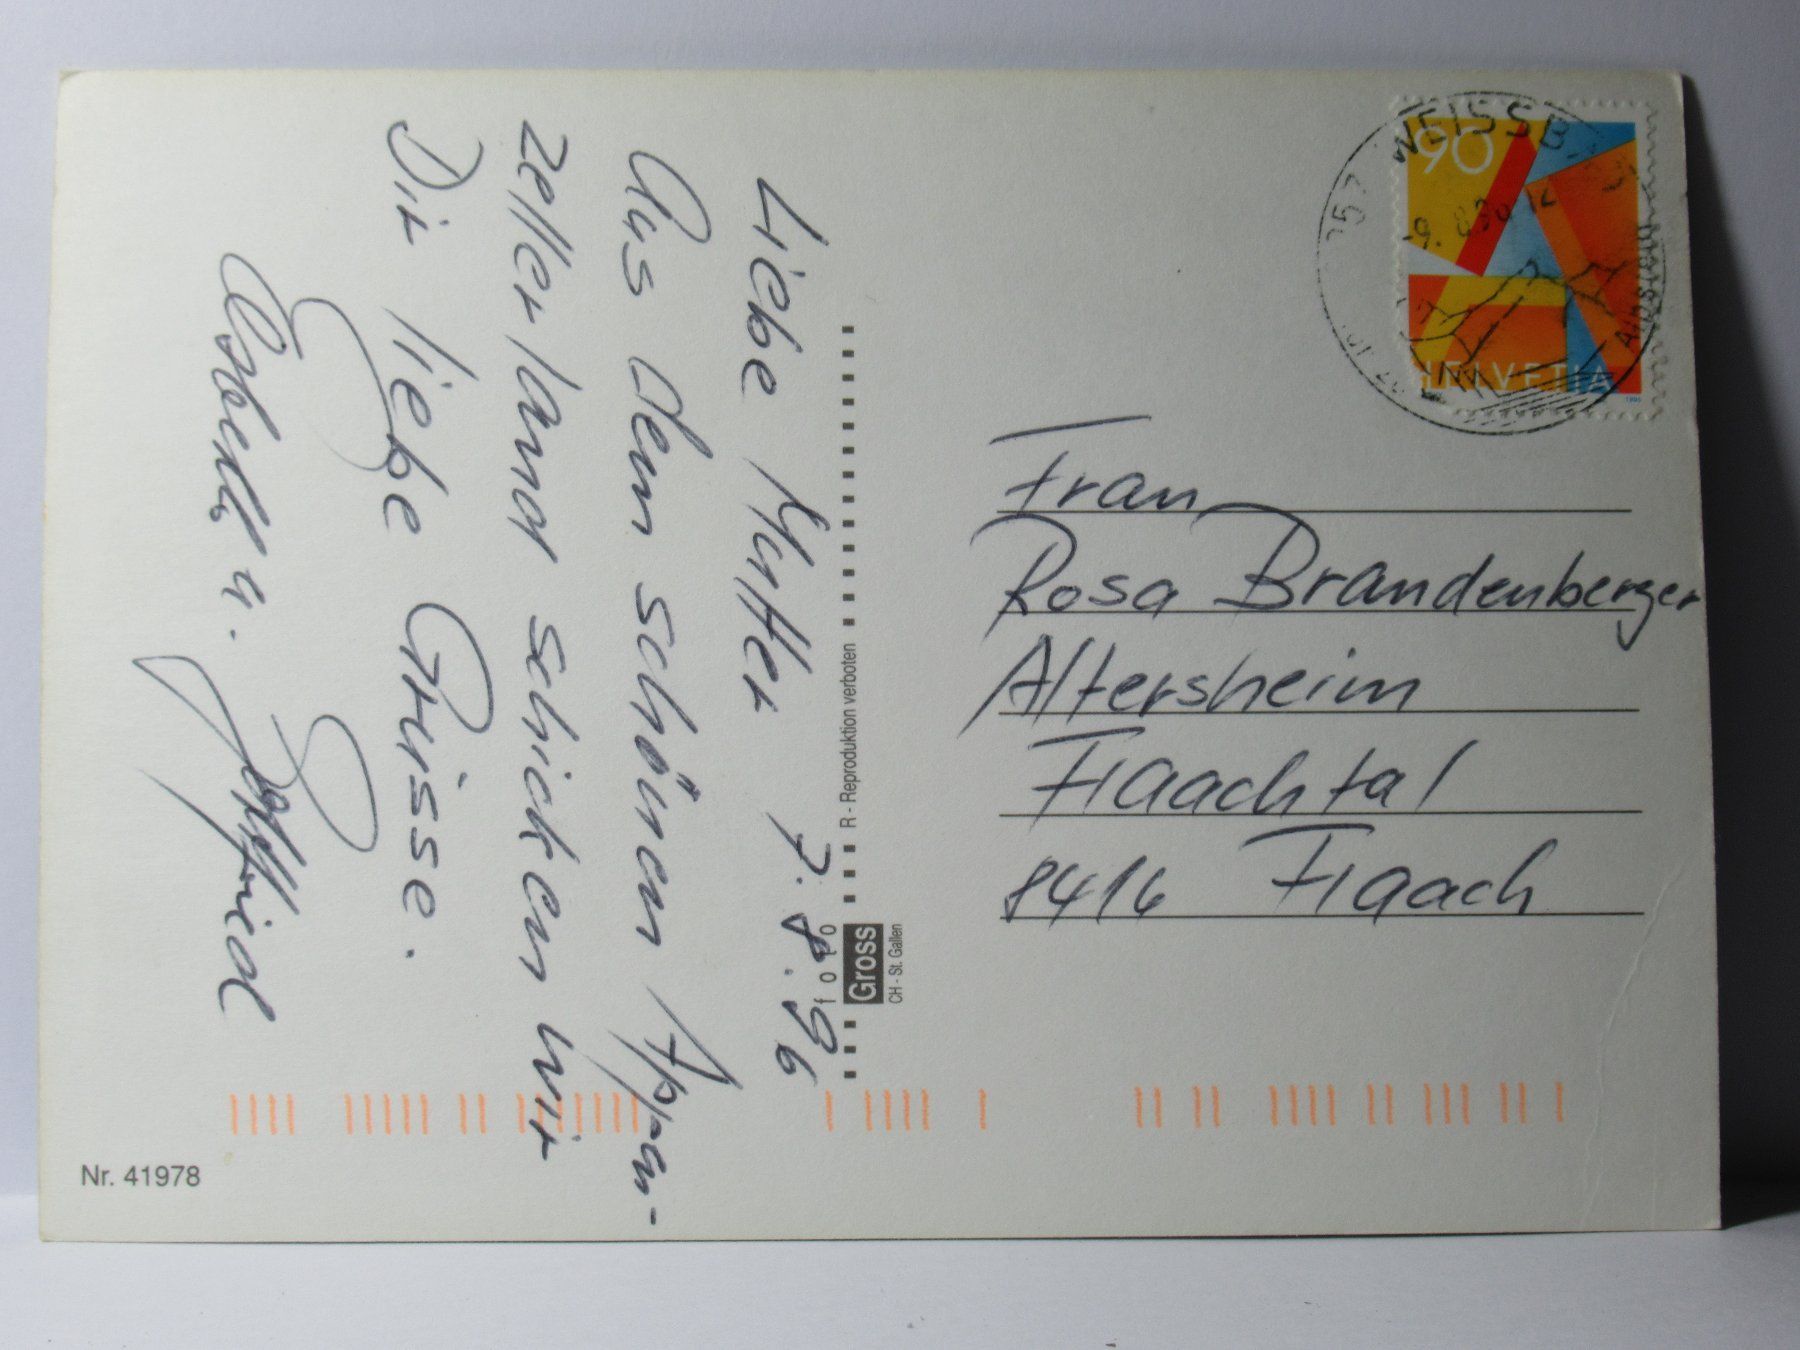 Liebe Mutter 7.8.96
Aus dem schönen Appen-
zellerland schicken wir
Dir liebe Grüsse.
u. Gottfried
R - Reproduktion verboten
foto
Gross
CH - St. Gallen
Nr. 41978
90
HELVETIA
1995
WEISSB
-9. 8.96 12
Alpstein
Frau
Rosa Brandenberger
Altersheim
Flaachtal
8416 Flaach